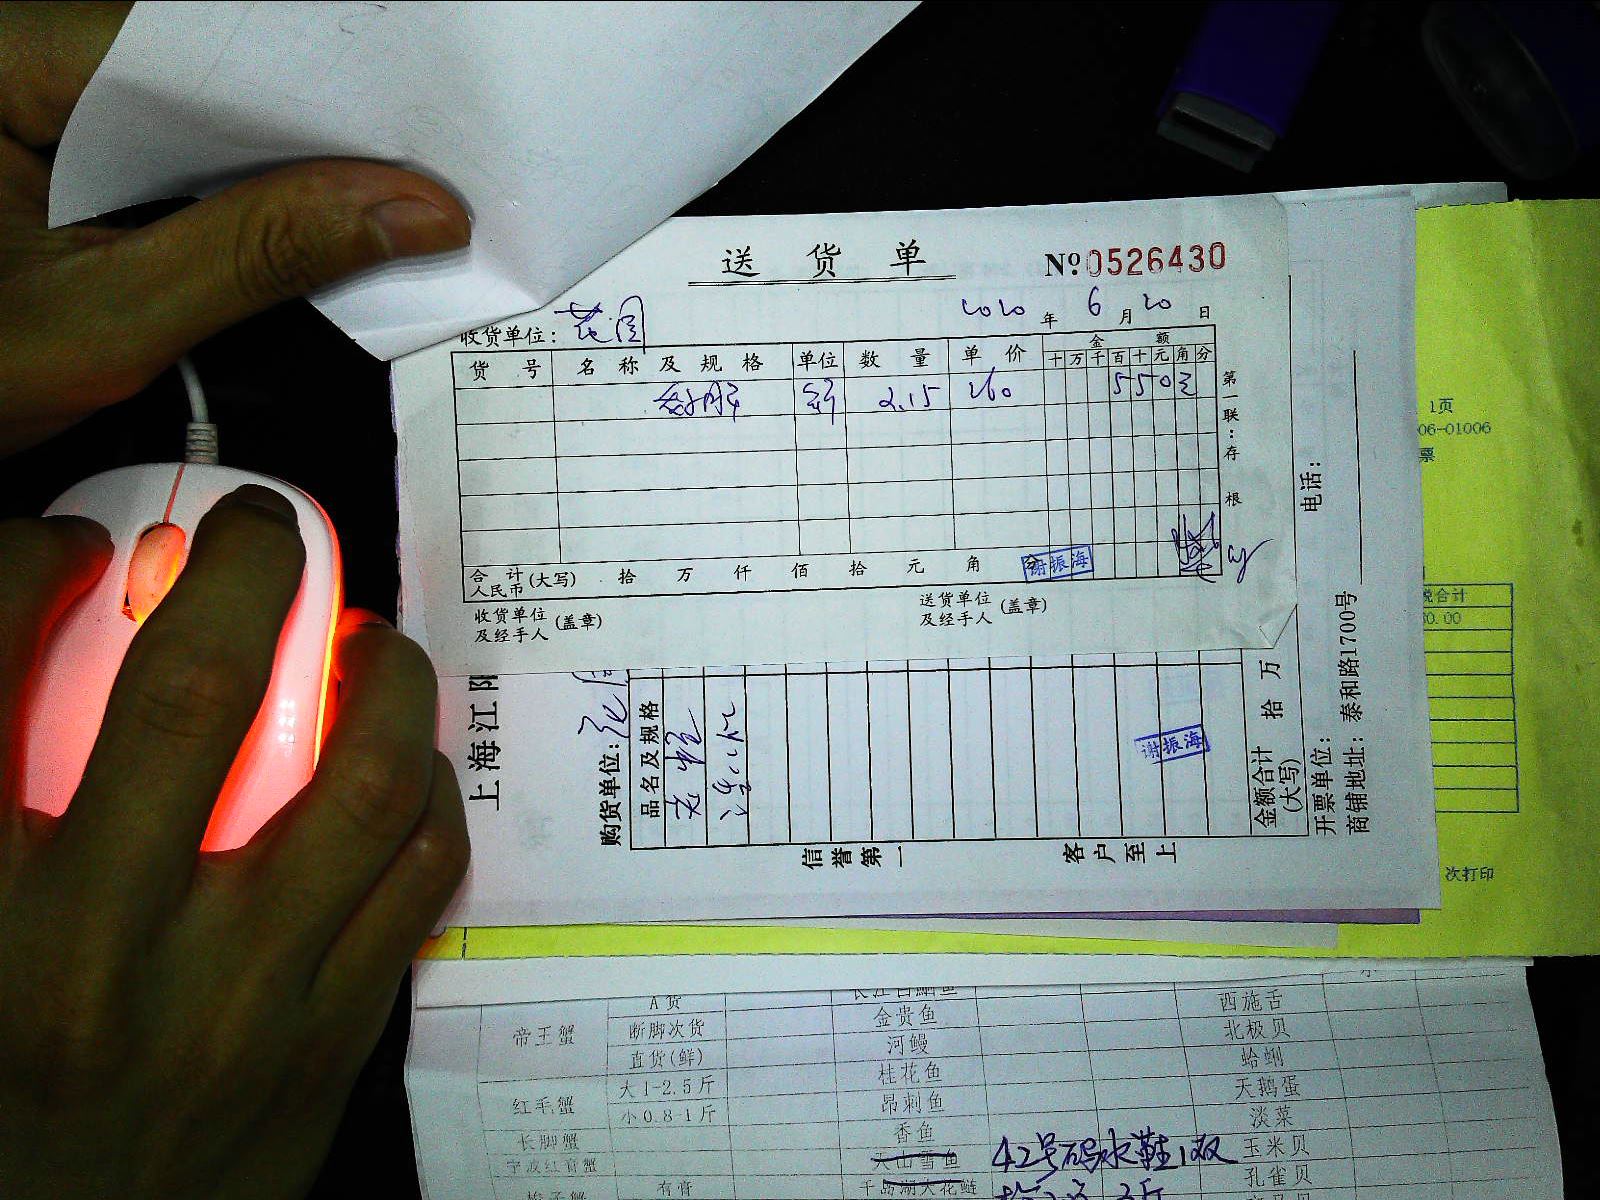 送货单 №0526430
收货单位: 花园 2020年6月20日
货号 名称及规格 单位 数量 单价 金额
十万千百十元角分
2.15 260 550
第一联:存根
合计人民币(大写) 拾 万 仟 佰 拾 元 角 分
谢振海
收货单位及经手人(盖章) 送货单位及经手人(盖章)
上海江阳
购货单位: 花园
品名及规格
谢振海
金额合计(大写) 拾 万
开票单位:
商铺地址: 泰和路1700号
电话:
信誉第一 客户至上
1页
06-01006
票
税合计
0.00
次打印
A货
帝王蟹 断脚次货 金贵鱼 西施舌
直货(鲜) 河鳗 北极贝
红毛蟹 大1-2.5斤 桂花鱼 蛤蜊
小0.8-1斤 昂刺鱼 天鹅蛋
长脚蟹 香鱼 淡菜
宁波红膏蟹 天山雪鱼 42号码水鞋1双 玉米贝
梭子蟹 有膏 千岛湖大花鲢 孔雀贝